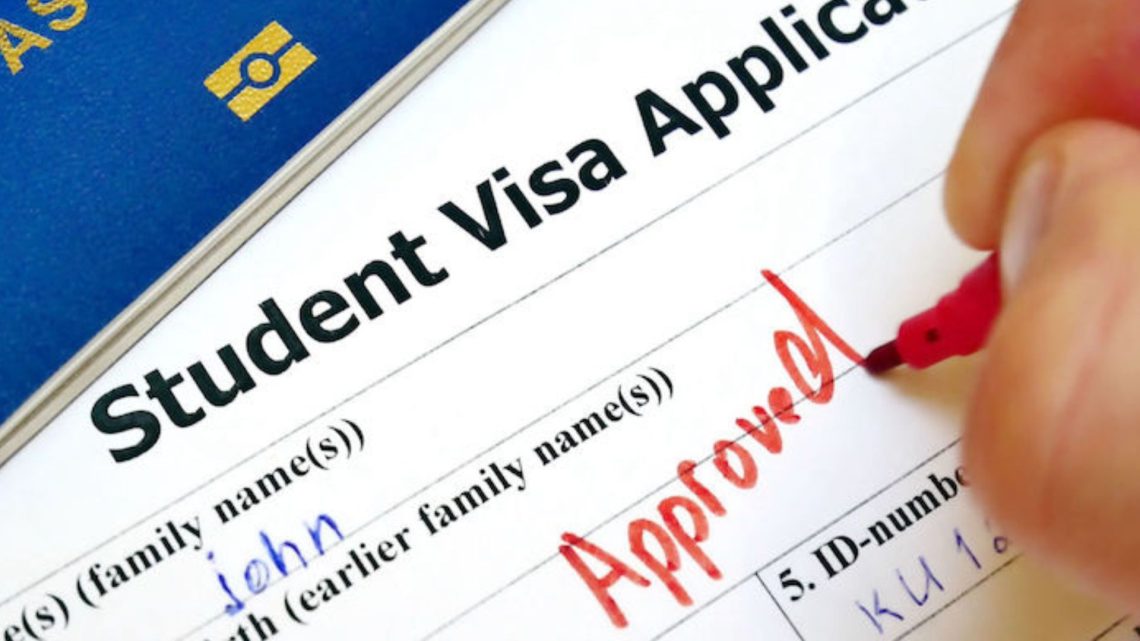 AS
Student Visa Applica
(family name(s))
john
(earlier family name(s))
Approved
5. ID-numbe
KU 1